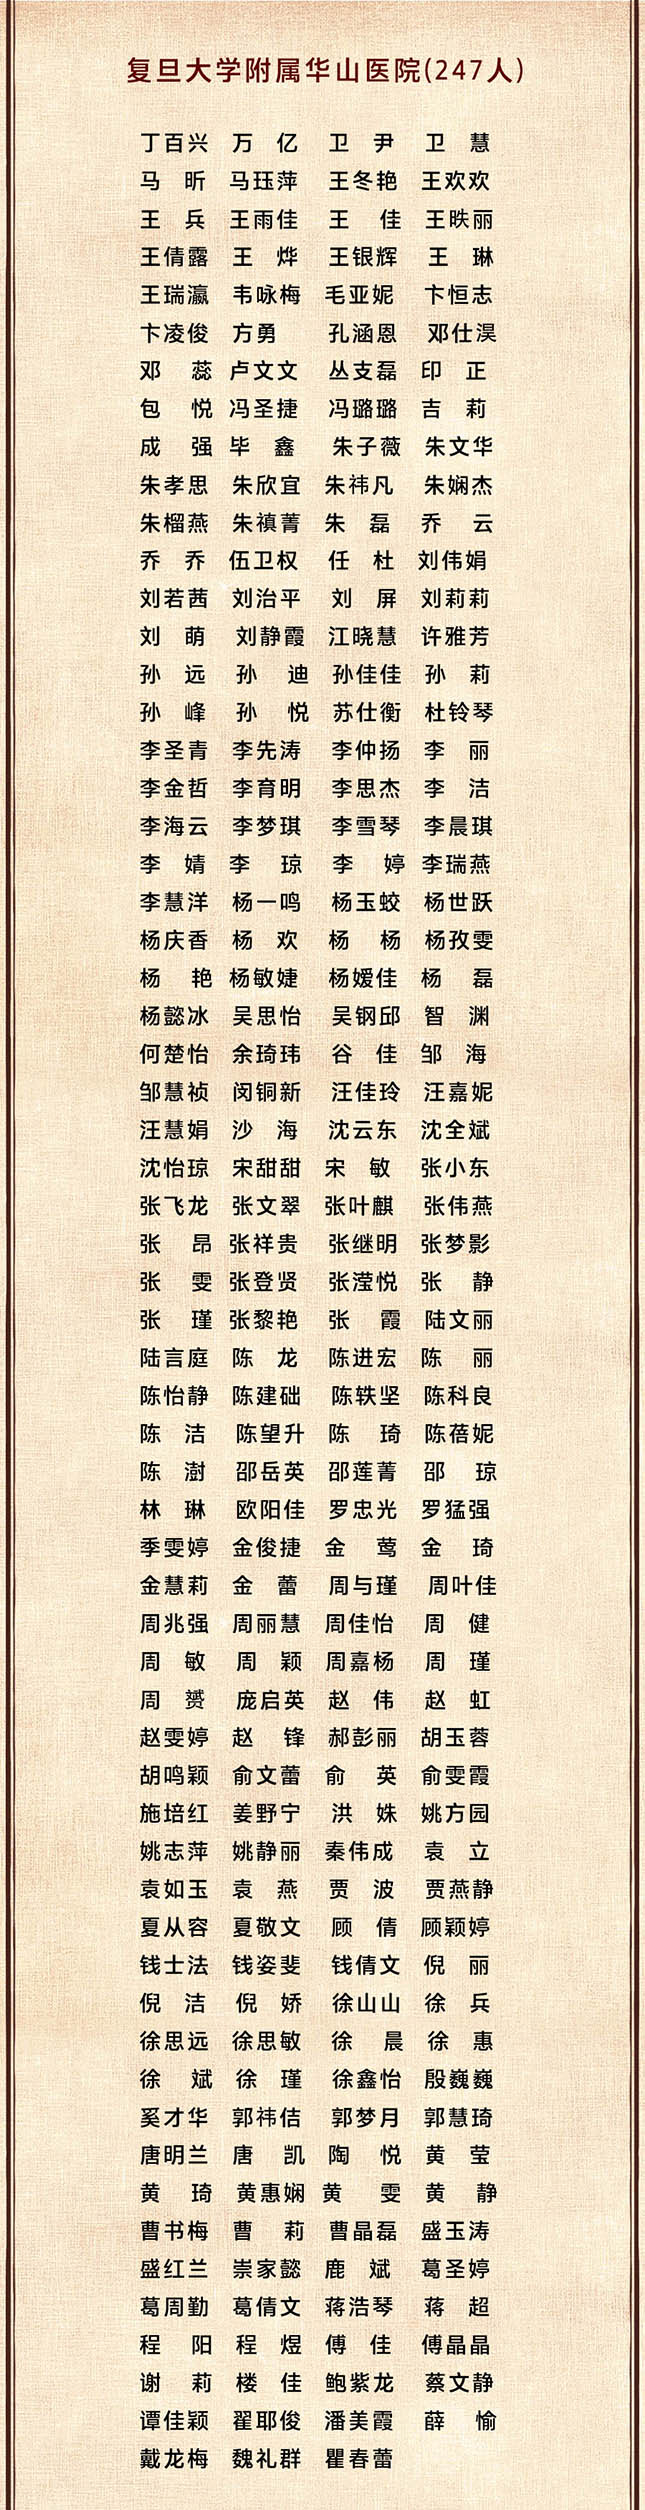 复旦大学附属华山医院(247人)
丁百兴 万 亿 卫 尹 卫 慧
马 昕 马珏萍 王冬艳 王欢欢
王 兵 王雨佳 王 佳 王昳丽
王倩露 王 烨 王银辉 王 琳
王瑞瀛 韦咏梅 毛亚妮 卞恒志
卞凌俊 方勇 孔涵恩 邓仕淏
邓 蕊 卢文文 丛支磊 印 正
包 悦 冯圣捷 冯璐璐 吉 莉
成 强 毕 鑫 朱子薇 朱文华
朱孝思 朱欣宜 朱祎凡 朱娴杰
朱榴燕 朱禛菁 朱 磊 乔 云
乔 乔 伍卫权 任 杜 刘伟娟
刘若茜 刘治平 刘 屏 刘莉莉
刘 萌 刘静霞 江晓慧 许雅芳
孙 远 孙 迪 孙佳佳 孙 莉
孙 峰 孙 悦 苏仕衡 杜铃琴
李圣青 李先涛 李仲扬 李 丽
李金哲 李育明 李思杰 李 洁
李海云 李梦琪 李雪琴 李晨琪
李 婧 李 琼 李 婷 李瑞燕
李慧洋 杨一鸣 杨玉蛟 杨世跃
杨庆香 杨 欢 杨 杨 杨孜雯
杨 艳 杨敏婕 杨嫒佳 杨 磊
杨懿冰 吴思怡 吴钢邱 智 渊
何楚怡 余琦玮 谷 佳 邹 海
邹慧祯 闵铜新 汪佳玲 汪嘉妮
汪慧娟 沙 海 沈云东 沈全斌
沈怡琼 宋甜甜 宋 敏 张小东
张飞龙 张文翠 张叶麒 张伟燕
张 昂 张祥贵 张继明 张梦影
张 雯 张登贤 张滢悦 张 静
张 瑾 张黎艳 张 霞 陆文丽
陆言庭 陈 龙 陈进宏 陈 丽
陈怡静 陈建础 陈轶坚 陈科良
陈 洁 陈望升 陈 琦 陈蓓妮
陈 澍 邵岳英 邵莲菁 邵 琼
林 琳 欧阳佳 罗忠光 罗猛强
季雯婷 金俊捷 金 莺 金 琦
金慧莉 金 蕾 周与瑾 周叶佳
周兆强 周丽慧 周佳怡 周 健
周 敏 周 颖 周嘉杨 周 瑾
周 赟 庞启英 赵 伟 赵 虹
赵雯婷 赵 锋 郝彭丽 胡玉蓉
胡鸣颖 俞文蕾 俞 英 俞雯霞
施培红 姜野宁 洪 姝 姚方园
姚志萍 姚静丽 秦伟成 袁 立
袁如玉 袁 燕 贾 波 贾燕静
夏从容 夏敬文 顾 倩 顾颖婷
钱士法 钱姿斐 钱倩文 倪 丽
倪 洁 倪 娇 徐山山 徐 兵
徐思远 徐思敏 徐 晨 徐 惠
徐 斌 徐 瑾 徐鑫怡 殷巍巍
奚才华 郭祎佶 郭梦月 郭慧琦
唐明兰 唐 凯 陶 悦 黄 莹
黄 琦 黄惠娴 黄 雯 黄 静
曹书梅 曹 莉 曹晶磊 盛玉涛
盛红兰 崇家懿 鹿 斌 葛圣婷
葛周勤 葛倩文 蒋浩琴 蒋 超
程 阳 程 煜 傅 佳 傅晶晶
谢 莉 楼 佳 鲍紫龙 蔡文静
谭佳颖 翟耶俊 潘美霞 薛 愉
戴龙梅 魏礼群 瞿春蕾